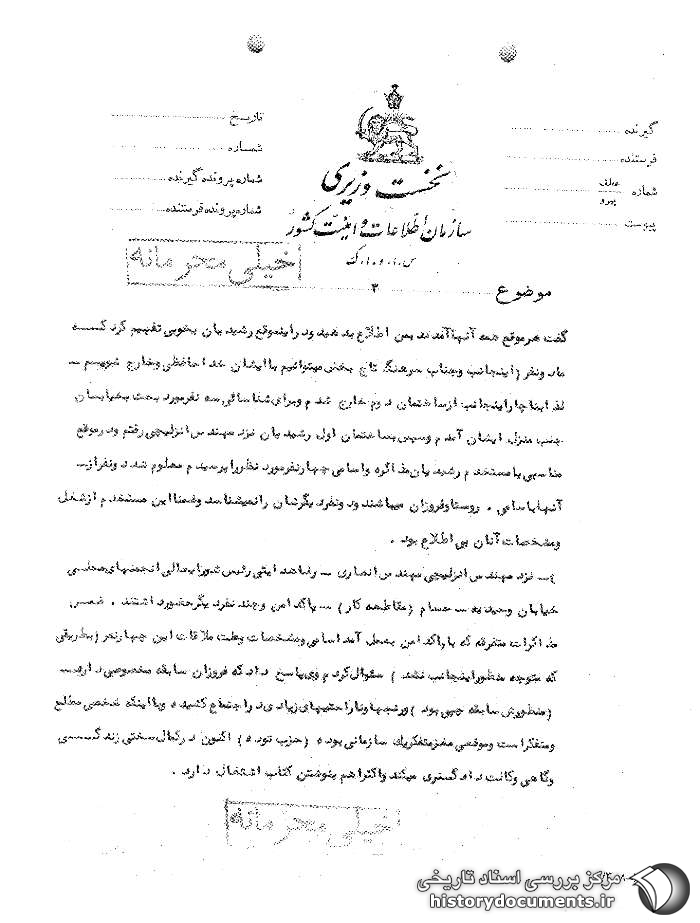 گیرنده
فرستنده
شماره عطف پیرو
پیوست
تاریخ
شماره
شماره پرونده گیرنده
شماره پرونده فرستنده
نخست وزیری
سازمان اطلاعات و امنیت کشور
س.ا.و.ا.ک
خیلی محرمانه
موضوع ۳
گفت هر موقع همه آنها آمدند بمن اطلاع بدهید و در اینموقع رشیدیان بخوبی تفهیم کرد که
ما دو نفر (اینجانب و جناب سرهنگ تاج بخش میتوانیم با ایشان خداحافظی و خارج شویم –
لذا بناچار اینجانب از ساختمان دوم خارج شدم و برای شناسائی سه نفر مورد بحث بخیابان
جنب منزل ایشان آمدم و سپس بساختمان اول رشیدیان نزد مهندس انزلیچی رفتم و در موقع
مناسبی با مستخدم رشیدیان مذاکره و اسامی چهار نفر مورد نظر را پرسیدم معلوم شد دو نفر از –
آنها باسامی . روستا و فروزان میباشند و دو نفر دیگرشان را نمیشناسد و ضمنا این مستخدم از شغل
و مشخصات آنان بی اطلاع بود .
۴– نزد مهندس انزلیچی مهندس انصاری – رئیس شورایعالی انجمنهای محلی
خیابان وحیدیه – حسام (مقاطعه کار) – پاکدامن و چند نفر دیگر حضور داشتند . ضمن
مذاکرات متفرقه که با پاکدامن بعمل آمد اسامی و مشخصات و علت ملاقات این چهار نفر (بطریقی
که متوجه منظور اینجانب نشد) سئوال کردم وی پاسخ داد که فروزان سابقه مخصوصی دارد –
(منظورش سابقه چپی بود) و رنجها و ناراحتیهای زیادی در اجتماع کشیده و با اینکه شخصی مطلع
و متفکر است و موقعی مغز متفکر یک سازمانی بوده (حزب توده) اکنون در کمال سختی زندگی
و گاهی وکالت دادگستری میکند و اکثرا هم بنوشتن کتاب اشتغال دارد .
خیلی محرمانه
مرکز بررسی اسناد تاریخی
historydocuments.ir